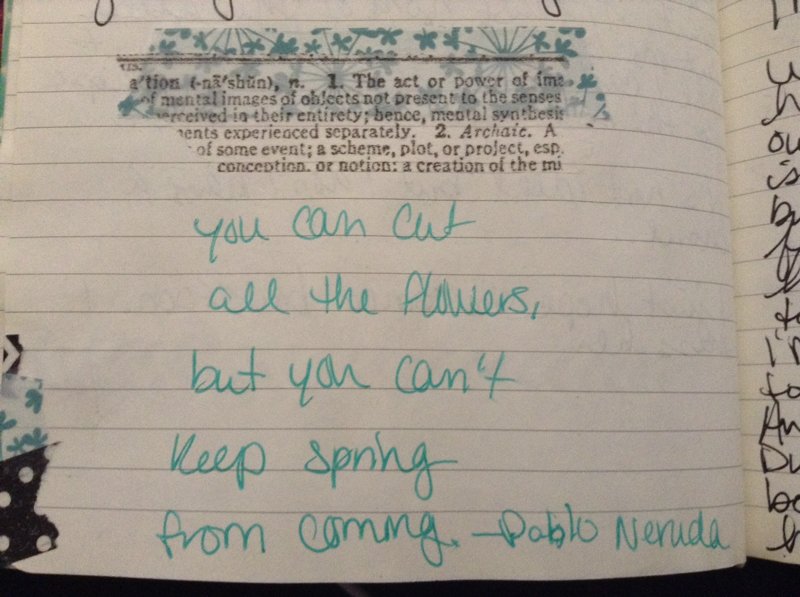 a'tion (-nā'shŭn), n. 1. The act or power of ima
of mental images of objects not present to the senses
perceived in their entirety; hence, mental synthesis
ents experienced separately. 2. Archaic. A
of some event; a scheme, plot, or project, esp.
conception, or notion; a creation of the mi
you can cut
all the flowers,
but you can't
keep spring
from coming. -Pablo Neruda
is
I'm
to
An